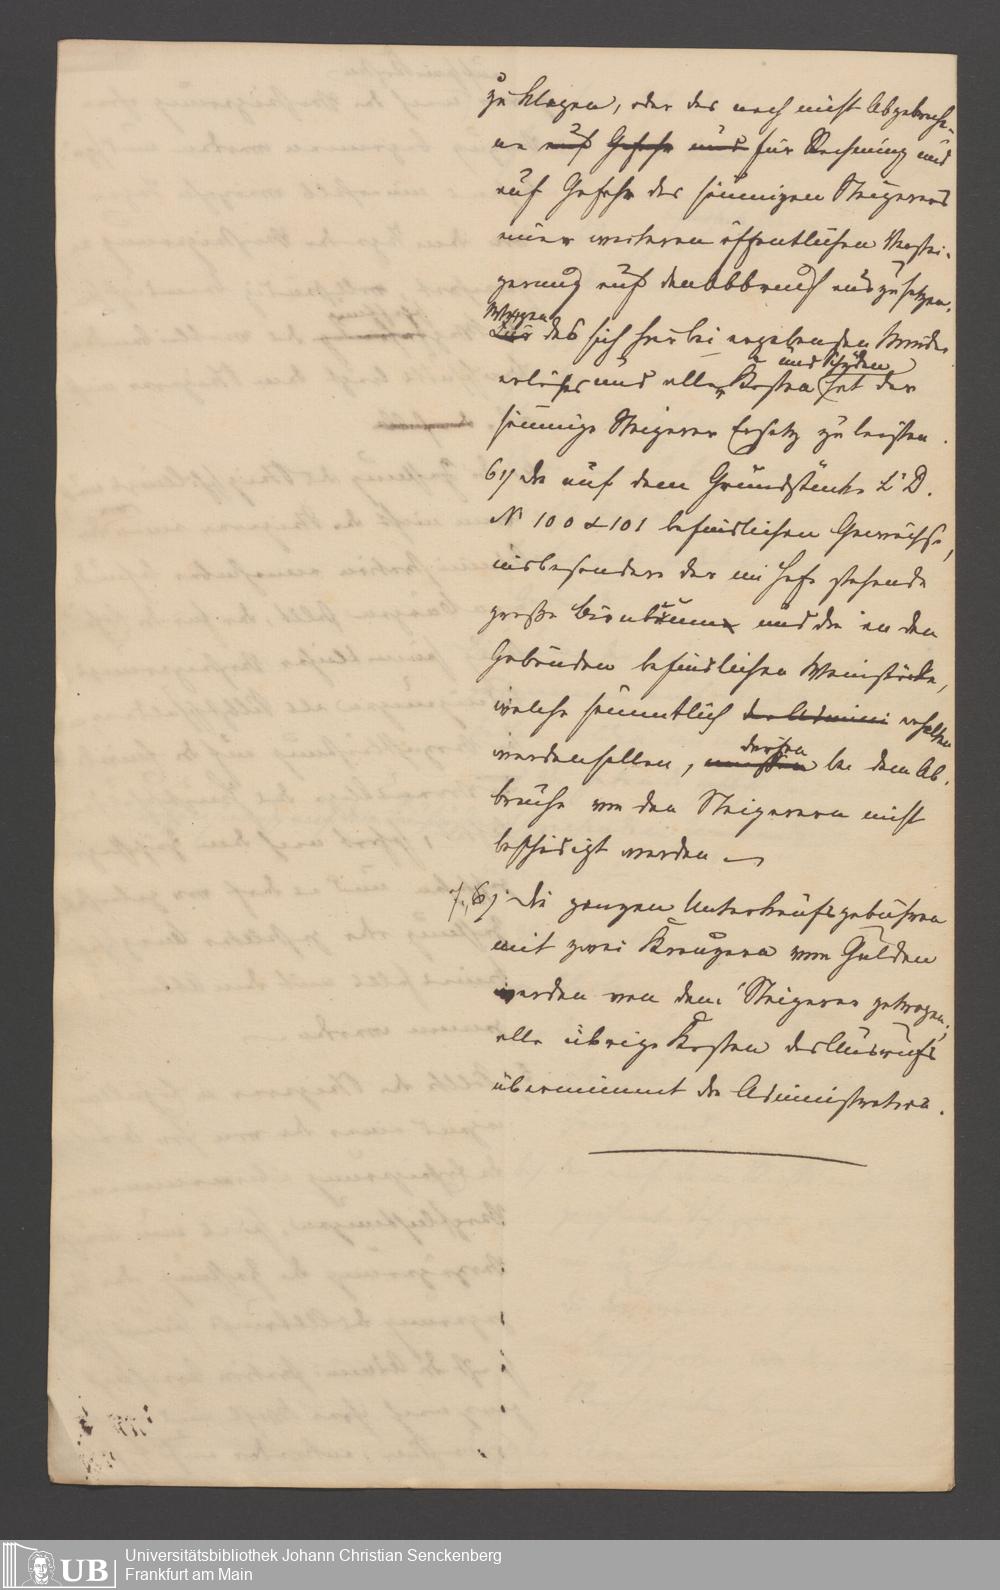 zu klagen, oder das noch nicht Abgebroche-
ne auf Gefahr und für Rechnung und
auf Gefahr des säumigen Steigerers
einer weiteren öffentlichen Verstei-
gerung auf den Abbruch auszusetzen.
Wegen
Für des sich hierbei ergebenden Minder-
und Schäden
erlöses und aller Kosten hat der
säumige Steigerer Ersatz zu leisten.
6) Die auf dem Grundstücke L. D.
N 100 & 101 befindlichen Gewächse,
insbesondere der im Hofe stehende
große Birnbaum und die an den
Gebäuden befindlichen Weinstöcke,
welche sämmtlich der Admini erhalten
dürfen
werden sollen, müssen bei dem Ab-
bruche von den Steigerern nicht
beschädigt werden
7., 6) Die ganzen Unterkaufsgebühren
mit zwei Kreuzern vom Gulden
werden von dem Steigerer getragen,
alle übrige Kosten des Ausrufs
übernimmt die Administration.
UB
Universitätsbibliothek Johann Christian Senckenberg
Frankfurt am Main